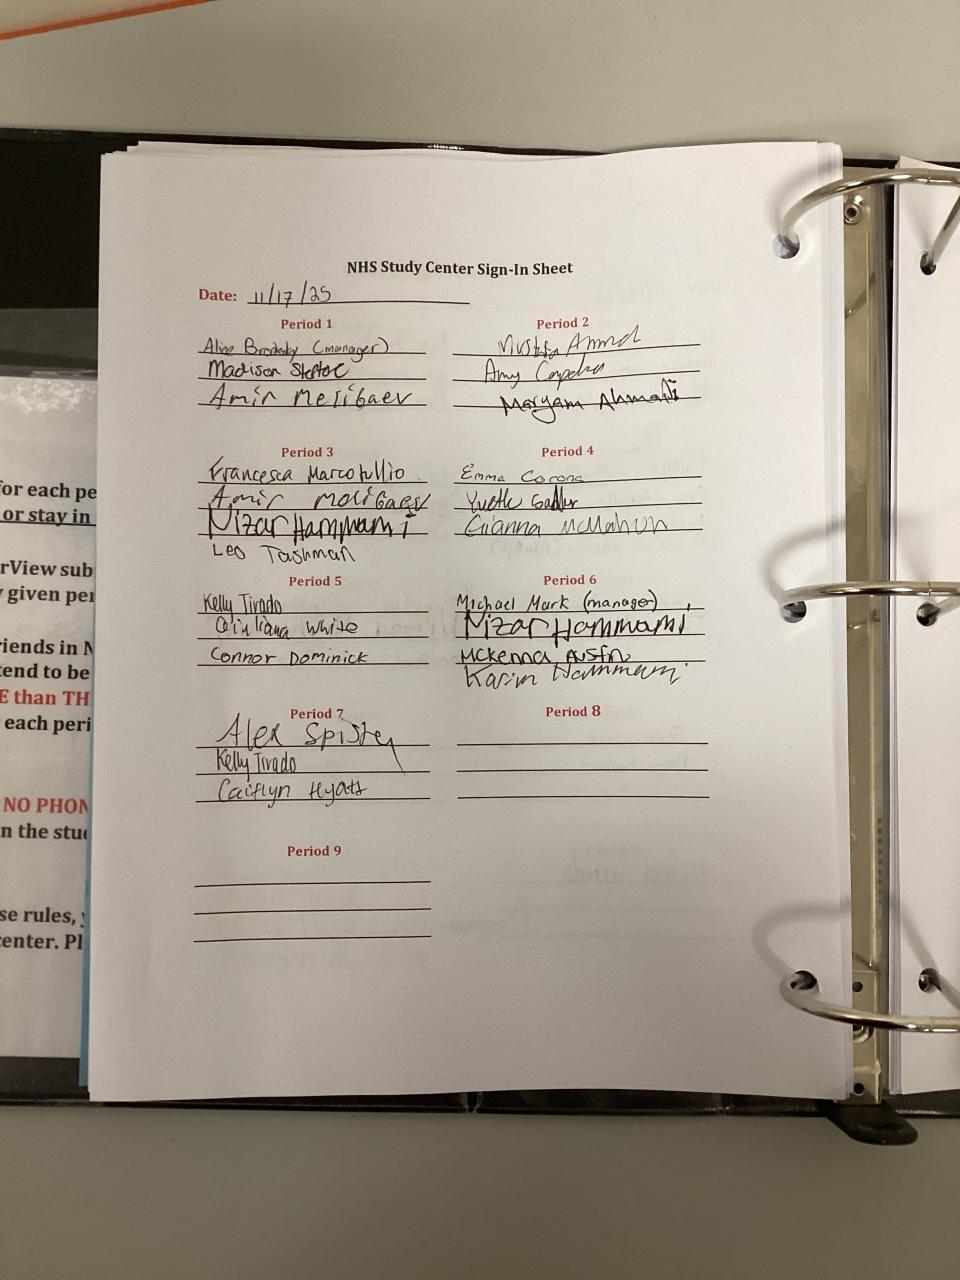 NHS Study Center Sign-In Sheet
Date: 11/17/25
Period 1
Brodsky (manager)
Madison
Amir Melibaev
Period 2
Mustafa Ahmed
Amy
Maryam Ahmadi
Period 3
Francesca Marcotullio
Amir Melibaev
Nizar Hammami
Leo Tashman
Period 4
Emma Corona
Gianna McMahon
Period 5
Kelly Tirado
White
Connor Dominick
Period 6
Michael Mark (manager)
Nizar Hammami
McKenna Austin
Karim Hammami
Period 7
Alex
Kelly Tirado
Caitlyn Hyatt
Period 8
Period 9
for each pe
or stay in
rView sub
given per
riends in N
tend to be
E than TH
each peri
NO PHON
n the stu
se rules,
center. Pl